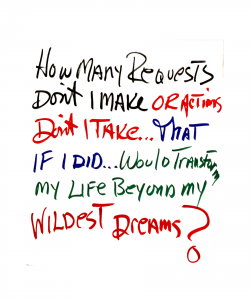 How Many Requests
Don't I Make or Actions
Don't I Take... That
If I Did... Would Transform
my Life Beyond my
Wildest Dreams?